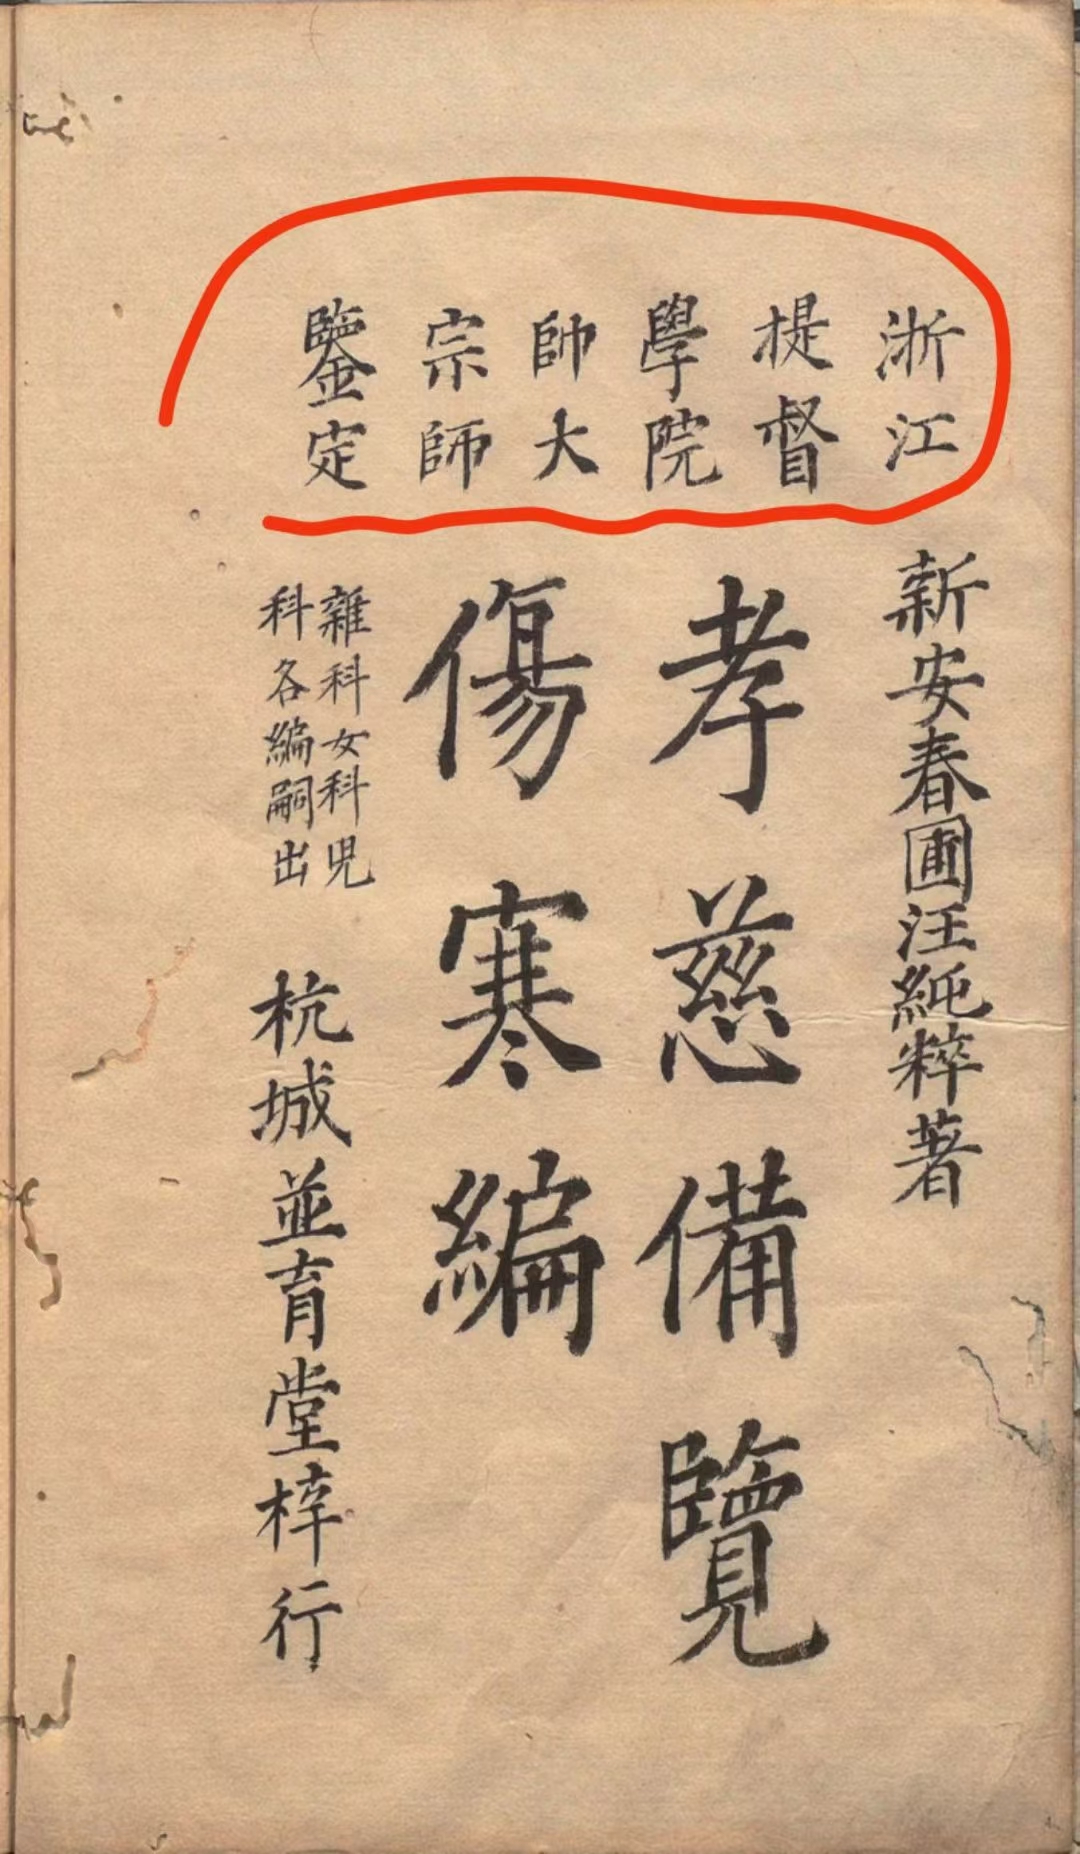 浙江
提督
學院
帥大
宗師
鑒定
新安春圃汪純粹著
孝慈備覽
傷寒編
雜科女科兒
科各編嗣出
杭城並育堂梓行